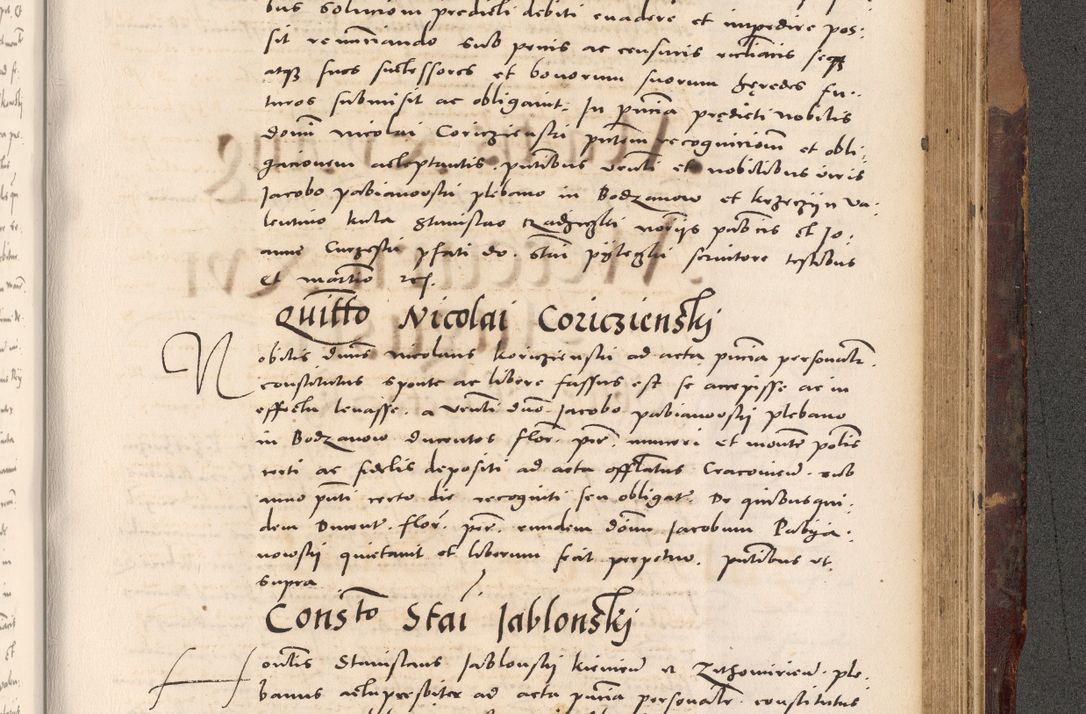 bus solucioni predicti debiti evadere et impedire pos-
sit renunciando sub penis ac censuris ecclesiasticis seq
atque suos successores et bonorum suorum heredes fu-
turos submisit ac obligavit. In pntia predicti nobilis
domini Nicolai Coriczienski pntem recognicionem et obli-
gacionem acceptantis. pntibus venli et nobilibus viris
Jacobo Pabianowski plebano in Bodzanow et krzeczijn Va-
lentino Kula Stanislao notarijs publicis et Jo-
anne pfati do. Stai servitore testibus
et
Quitto Nicolai Coricziensky
Nobilis dnus Nicolaus Koriczienski ad acta pntia personalr.
constitutus sponte ac libere fassus est se accepisse ac in
effectu levasse. a venli dno Jacobo Pabianowskij plebano
in Bodzanow ducentos flor. per. numeri et monte polis
certi ac fidelis depositi ad acta offltus Cracovien. sub
anno pnti certo die recogniti seu obligat. De quibusqui-
dem Ducent. flor. per. eundem donm Jacobum Pabija-
nowskij quietavit et liberum fecit perpetuo. pntibus ut.
supra
Consto Stai Jablonskj
Honlis Stanislaus Jablonskij kievien et Zithomirien. ple-
banus actu presbiter ad acta pntia personalr. constitutus